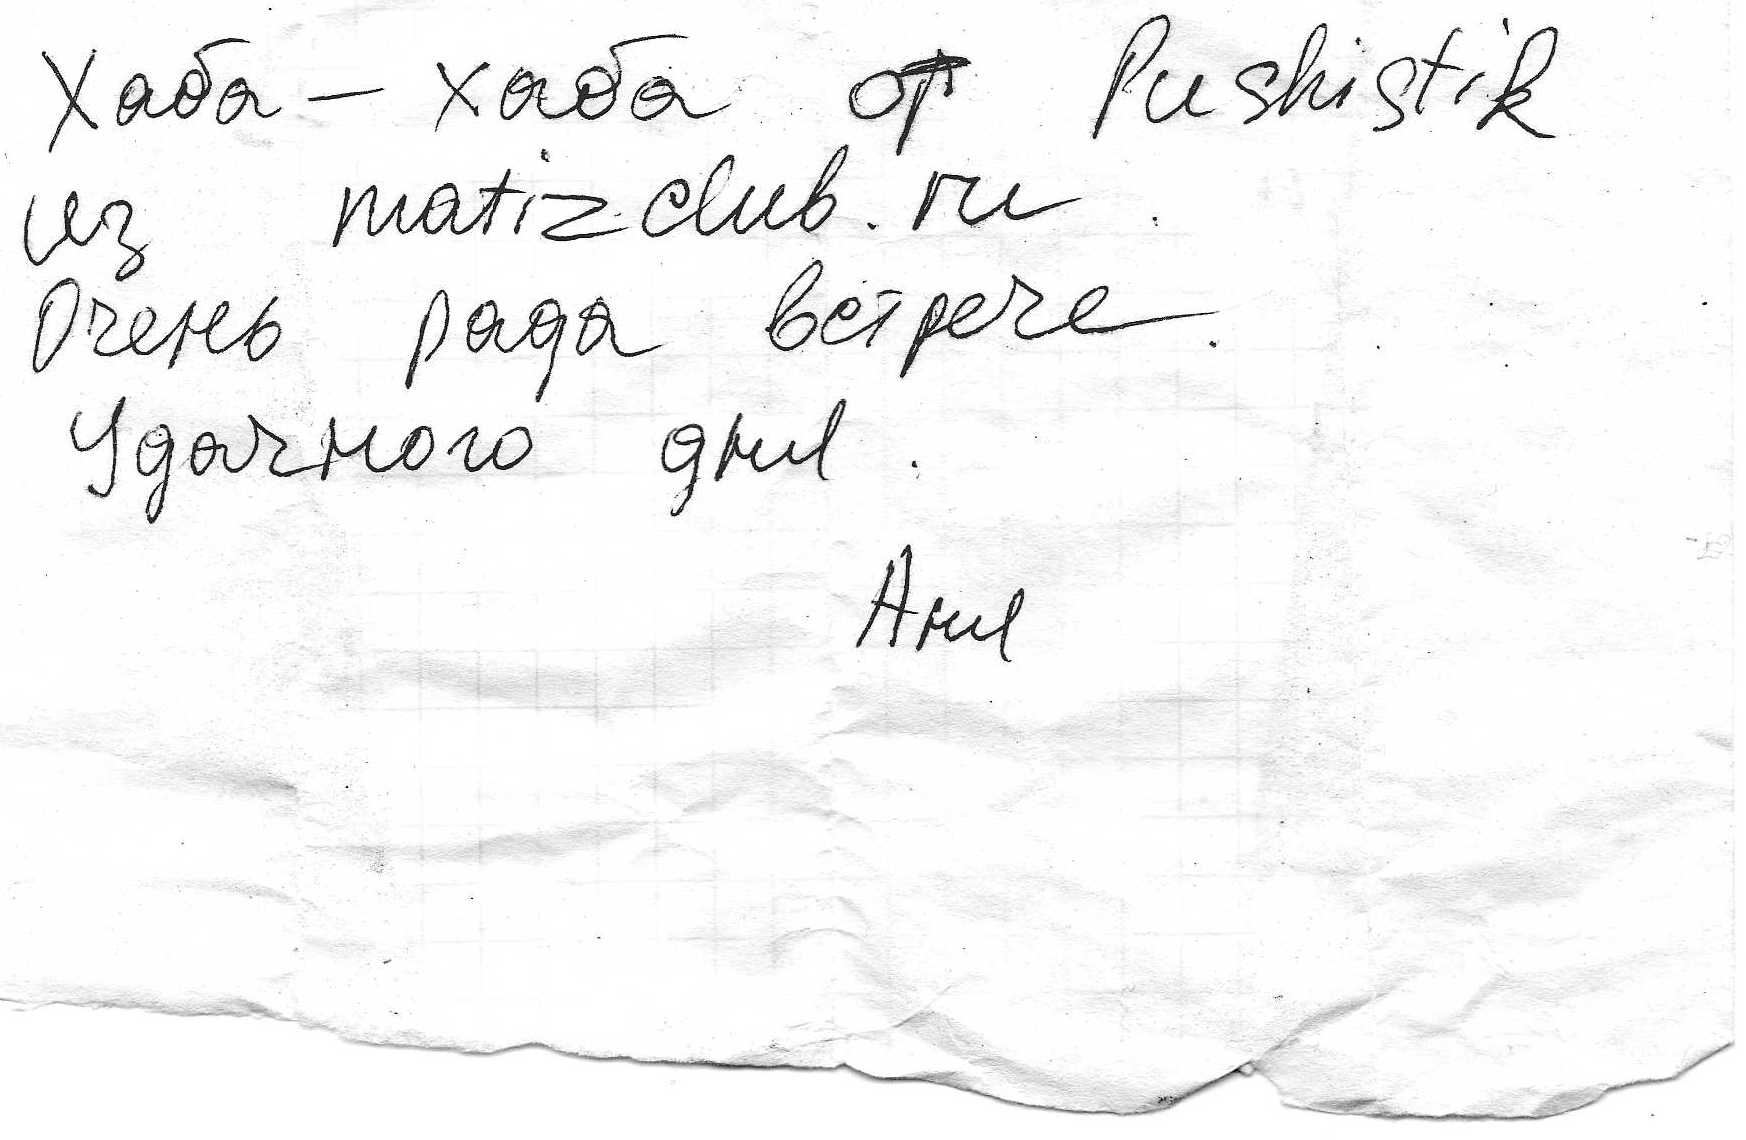 Хаба - хаба от Pushistik
из matizclub.ru.
Очень рада встрече.
Удачного дня.
Аня